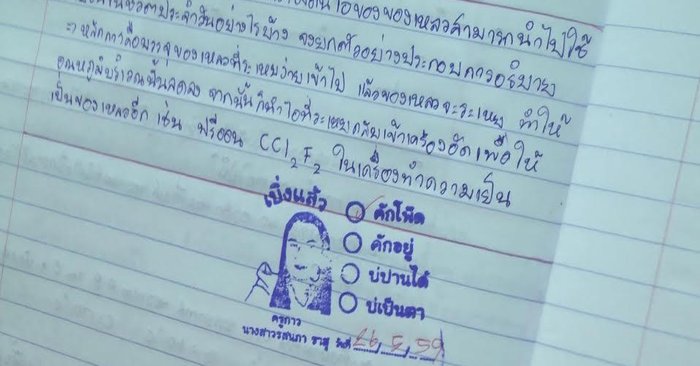 ในชีวิตประจำวันอย่างไรบ้าง จงยกตัวอย่างประกอบการอธิบาย
หลักการคือบรรจุของเหลวที่ระเหยง่ายเข้าไป แล้วของเหลวจะระเหย ทำให้
อุณหภูมิบริเวณนั้นลดลง จากนั้นก็นำไอที่ระเหยกลับเข้าเครื่องอัดเพื่อให้
เป็นของเหลวอีก เช่น ฟรีออน CCl₂F₂ ในเครื่องทำความเย็น
เบิ่งแล้ว
คักโพด
คักอยู่
บ่ปานได๋
บ่เป็นตา
ครูกาว
นางสาวรสนภา ราสุ วันที่ 26, 5, 59